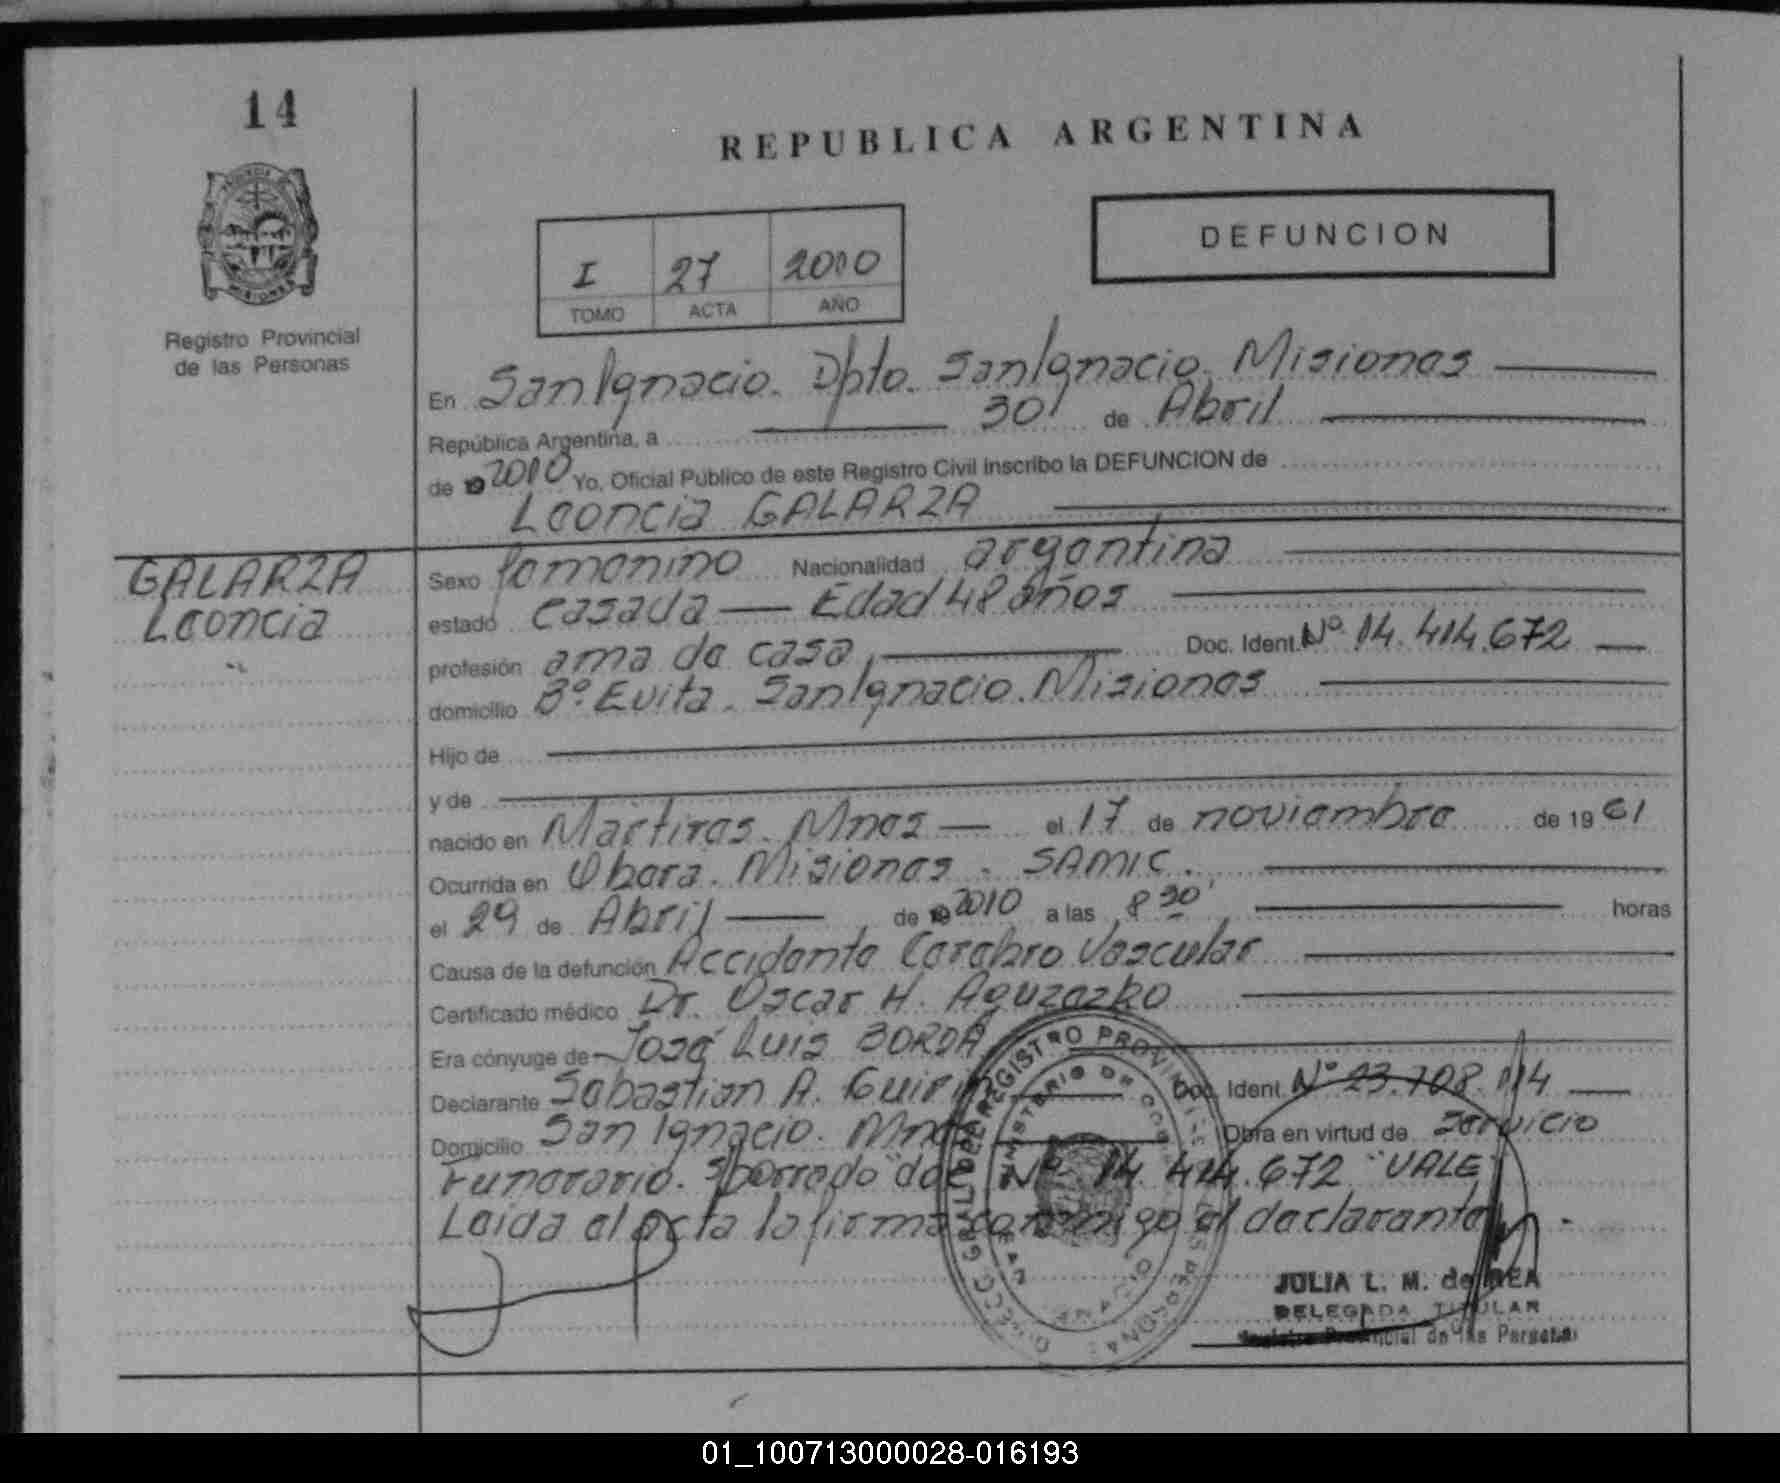 14
REPUBLICA ARGENTINA
DEFUNCION
I 27 2010
TOMO ACTA AÑO
Registro Provincial
de las Personas
En San Ignacio. Dpto. San Ignacio. Misiones
República Argentina, a 30 de Abril
de 2010 Yo, Oficial Público de este Registro Civil inscribo la DEFUNCION de
Leoncia GALARZA
GALARZA
Leoncia
Sexo femenino Nacionalidad argentina
estado casada — Edad 48 años
profesión ama de casa, Doc. Ident. Nº 14.414.672
domicilio Bº Evita. San Ignacio. Misiones
Hijo de
y de
nacido en Martires. Mnes — el 17 de noviembre de 19 61
Ocurrida en Obera. Misiones. SAMIC.
el 29 de Abril — de 2010 a las 8 horas
Causa de la defunción Accidente Cerebro Vascular
Certificado médico Dr. Oscar H.
Era cónyuge de José Luis BORDA
Declarante Sebastian A. Doc. Ident. Nº 23.708.114
Domicilio San Ignacio. Obra en virtud de servicio
Funerario. S/borrado Nº 14.414.672 "VALE"
Leida el acta la firma conmigo el declarante.
REGISTRO PROVINCIAL DE LAS PERSONAS
JULIA L. M. de REA
DELEGADA TITULAR
Registro Provincial de las Personas
01_100713000028-016193